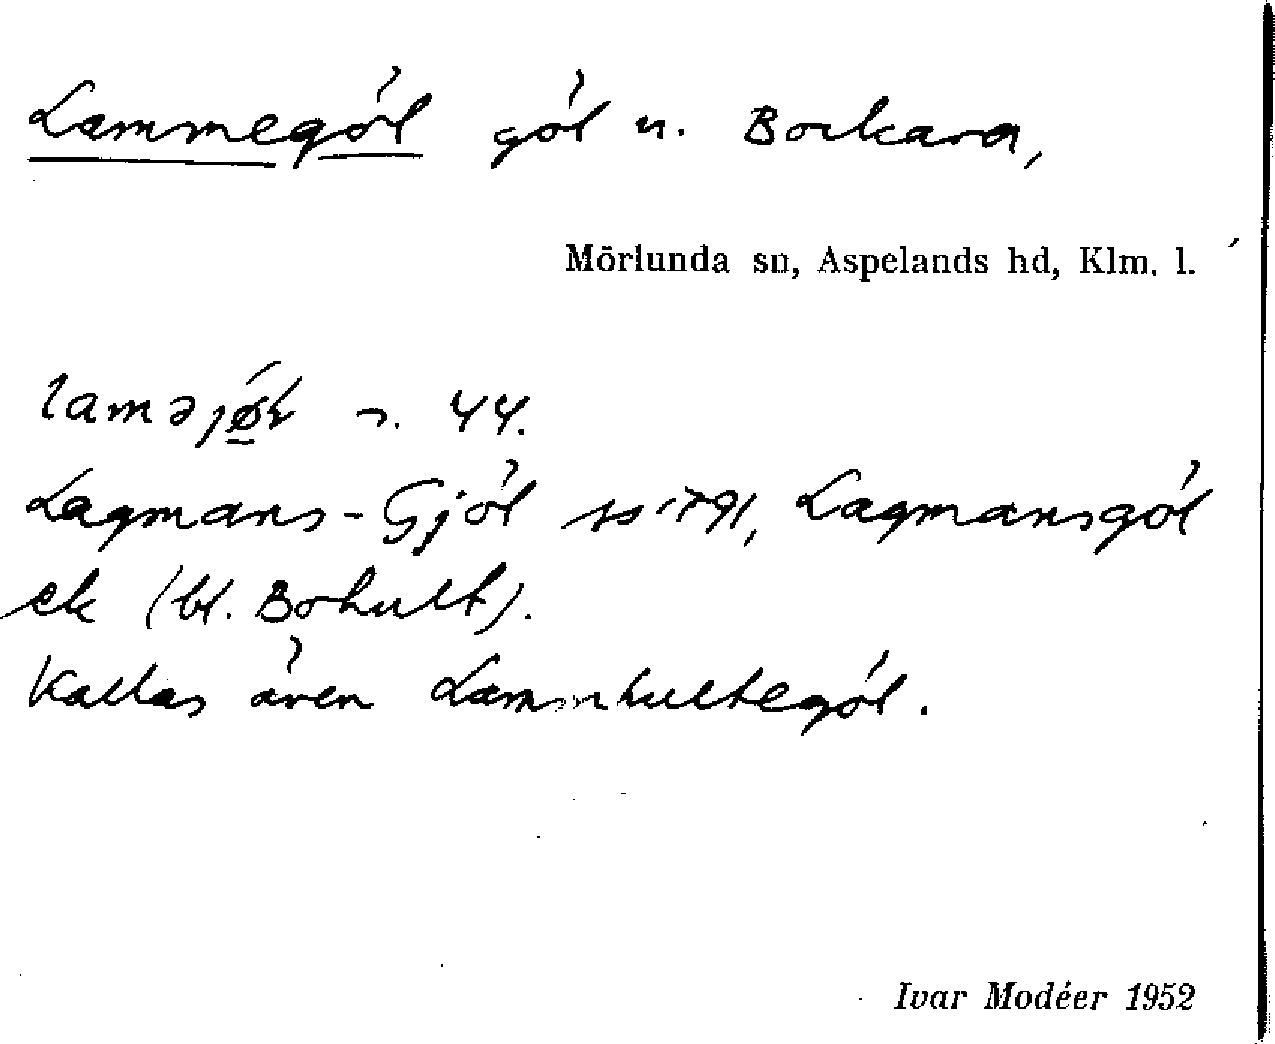 Lammegöl göl n. Bockara,
Mörlunda sn, Aspelands hd, Klm. l.
laməjǿ̲ɫ n. 44.
Lagmans-Gjöl ss 1791, Lagmansgöl
ek (bl. Bohult).
Kallas även Lammhultegöl.
Ivar Modéer 1952